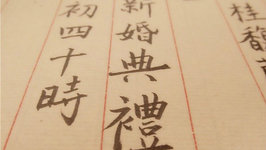 桂馥
新婚典禮
初四十時